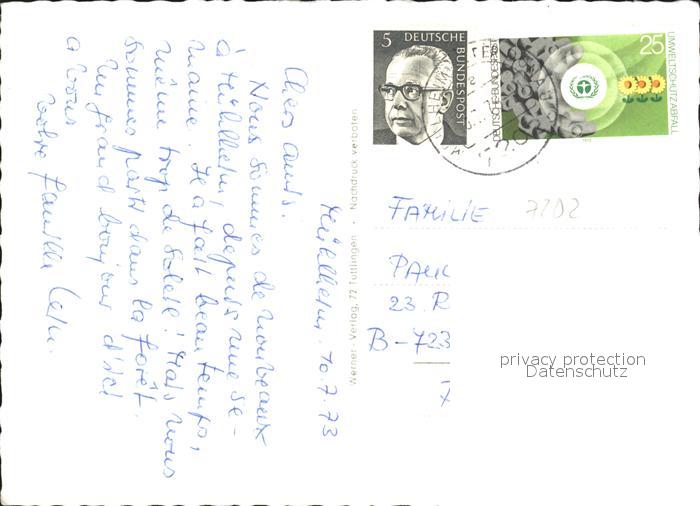 Mühlheim. 10.7.73
Chers amis.
Nous sommes de nouveaux
à Mühlheim depuis une se-
maine. Il a fait beau temps,
même trop de soleil! Mais nous
sommes partis dans la forêt.
Un grand bonjour d'ici
a vous
votre famille
Werner-Verlag, 72 Tuttlingen · Nachdruck verboten
5 DEUTSCHE
BUNDESPOST
DEUTSCHE BUNDESPOST
25
UMWELTSCHUTZ: ABFALL
1973
FAMILIE 7202
PAUL
23. R
B-723
7
privacy protection
Datenschutz